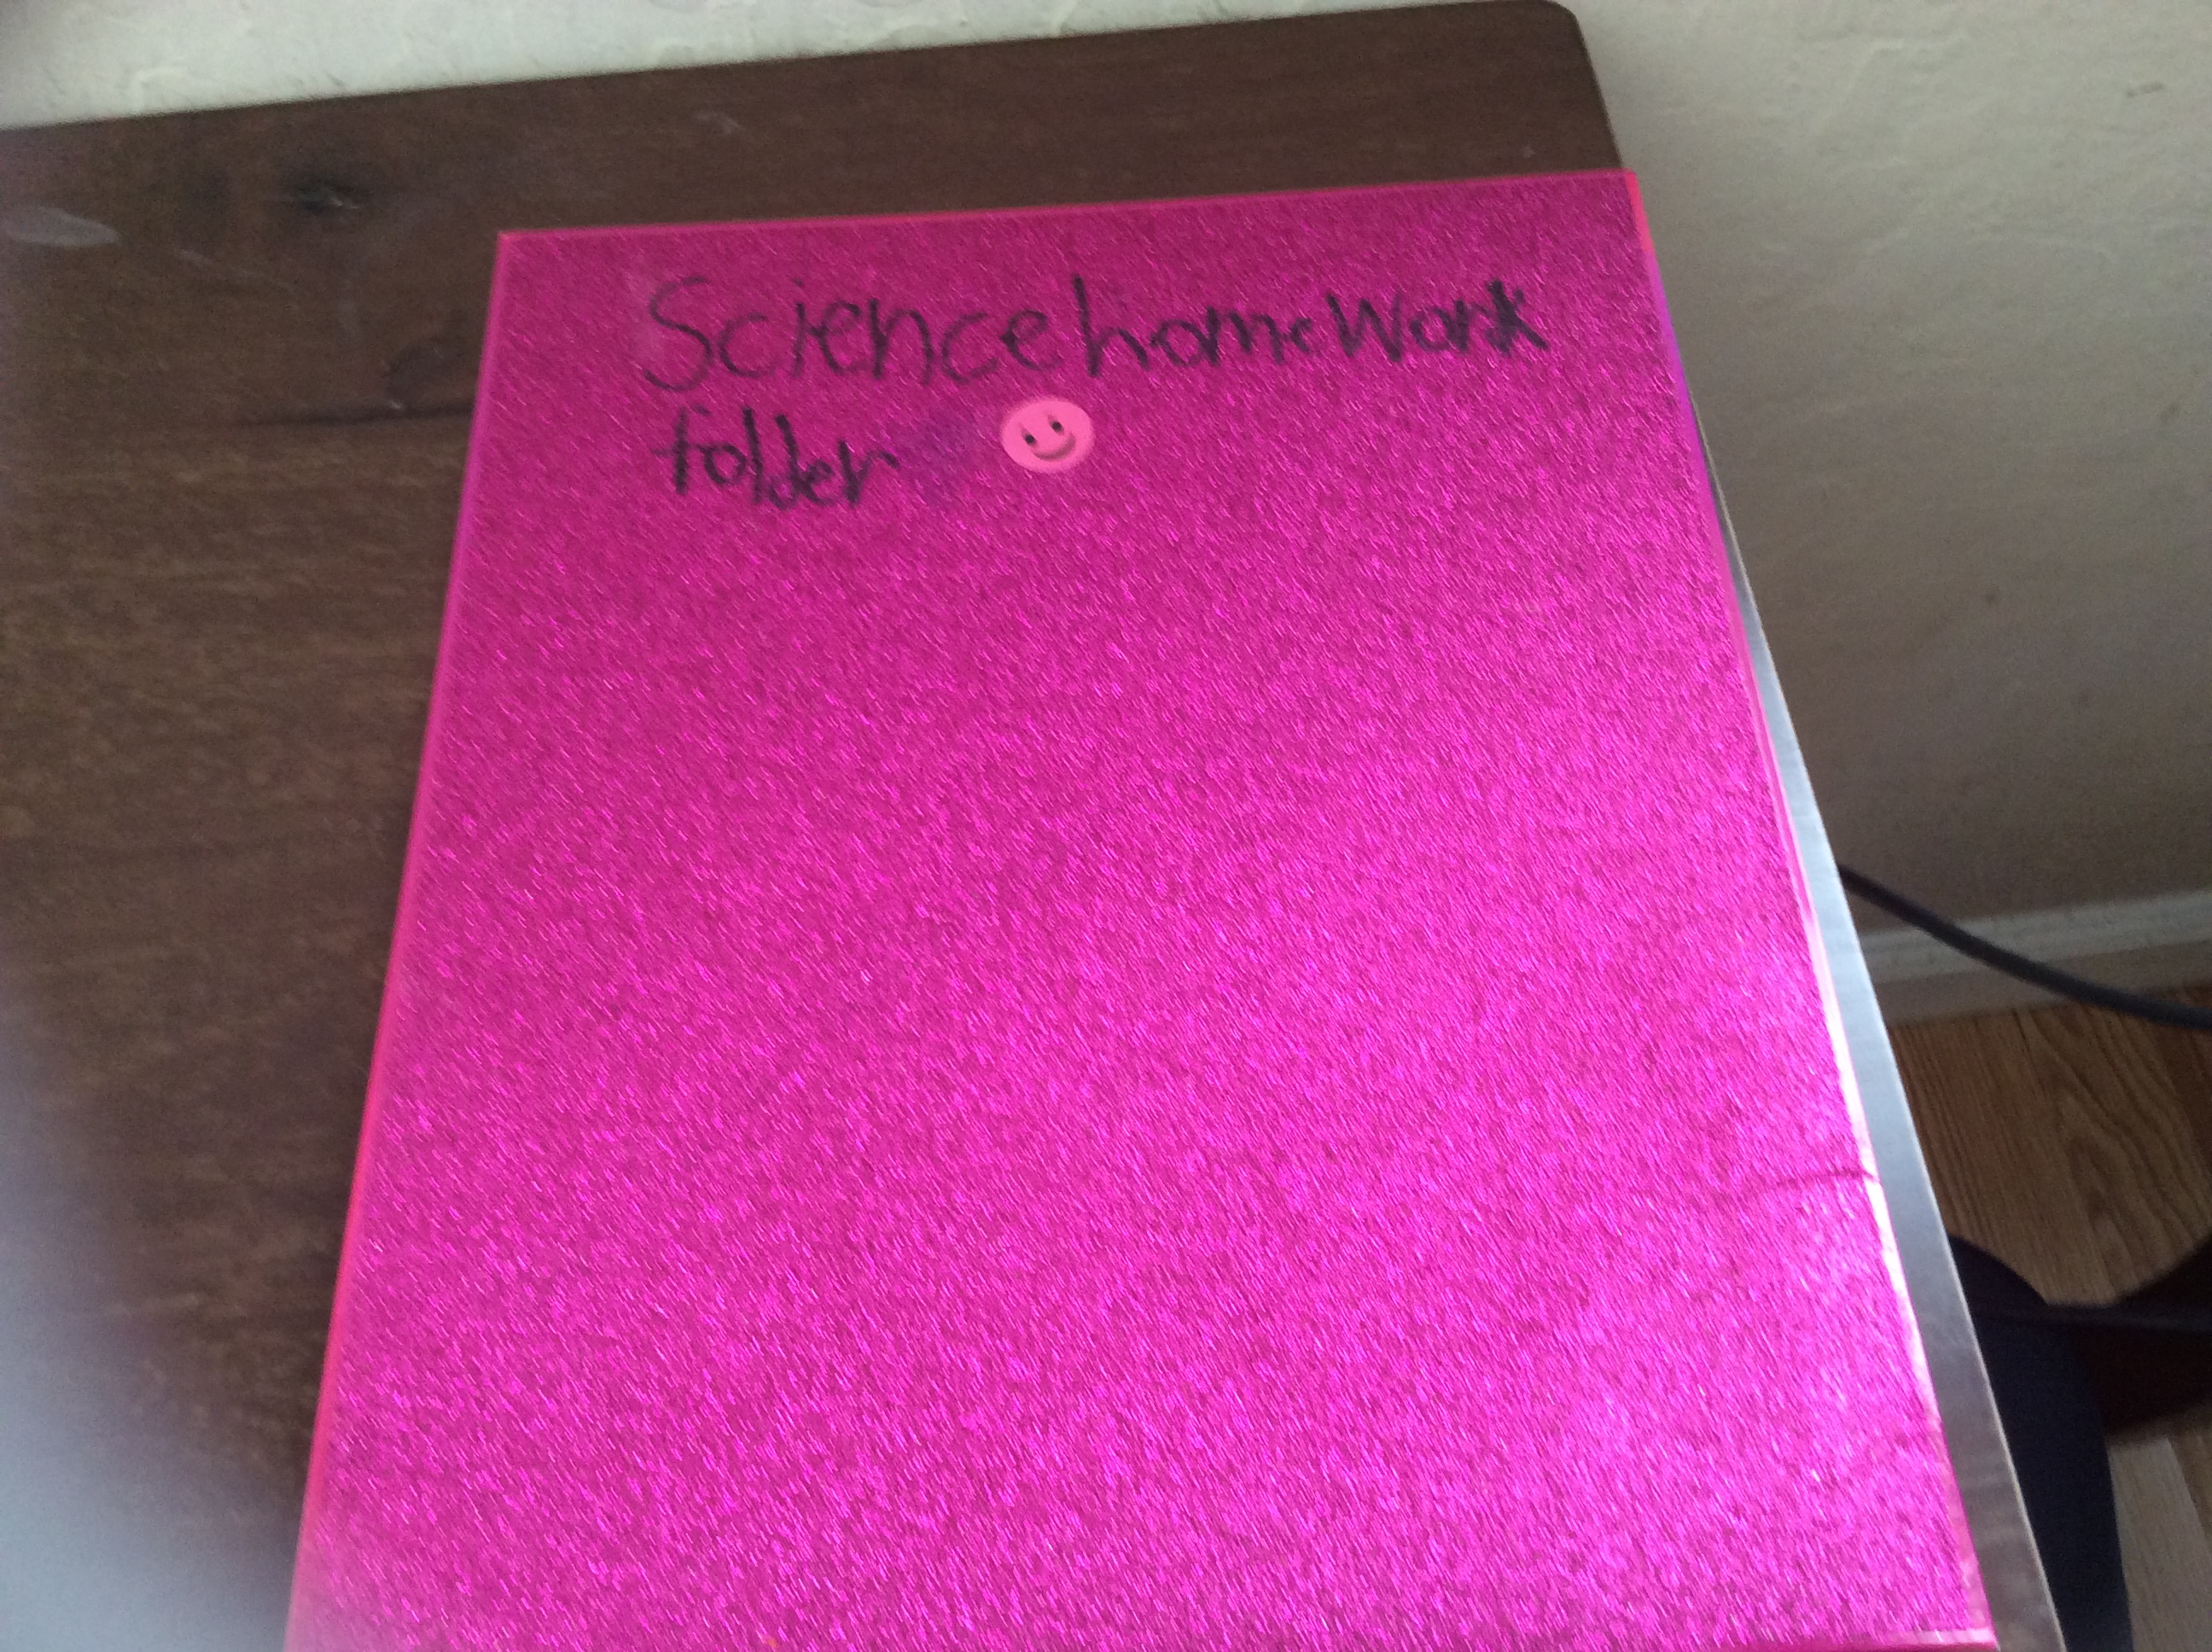 Science homeWork
folder